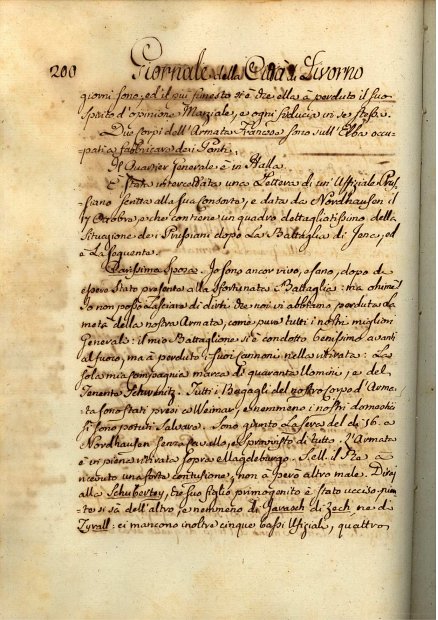 200 Giornale della Città di Livorno
giorni sono; ed il più funesto si è che ella à perduto il suo
spirito d'opinione Marziale, e ogni fiducia in se stessa.
Due corpi dell'Armata Francese sono sull'Elba occu-
pati a fabbricare dei Ponti.
Il Quartier Generale è in Halla.
È stata intercettata una Lettera di un'Uffiziale Prus-
siano scritta alla sua Consorte, e data da Nordhausen il
17 Ottobre, e che contiene un quadro dettagliatissimo della
Situazione dei Prussiani dopo La Battaglia di Jena, ed
è La seguente.
Carissima Sposa. Io sono ancor vivo, e sano, dopo di
essere stato presente alla sfortunata Battaglia: ma ohimè!
Io non posso Lasciare di dirti che noi vi abbiamo perduta la
metà della nostra Armata, come pure tutti i nostri migliori
Generali: il mio Battaglione si è condotto benissimo avanti
al fuoco, ma à perduto i suoi cannoni nella ritirata: La
sola mia compagnia manca di quaranta Uomini, e del
Tenente Schwnitz. Tutti i Bagagli del nostro corpo d'Arma-
ta sono stati presi a Weimar, e nemmeno i nostri domestici
si sono potuti salvare. Sono giunto La sera del dì 16. a
Nordhausen senza cavallo, e sprovvisto di tutto. L'Armata
è in piena ritirata sopra Magdeburgo. Sell. il Sta à
ricevuto una forte contusione, non à però altro male. Dirai
alla Schubertey, che suo figlio primogenito è stato ucciso,
to si sà dell'altro, se nemmeno di Gavasch di Zech, ne di
Tyrall: ci mancano inoltre cinque bassi Uffiziali, quattro